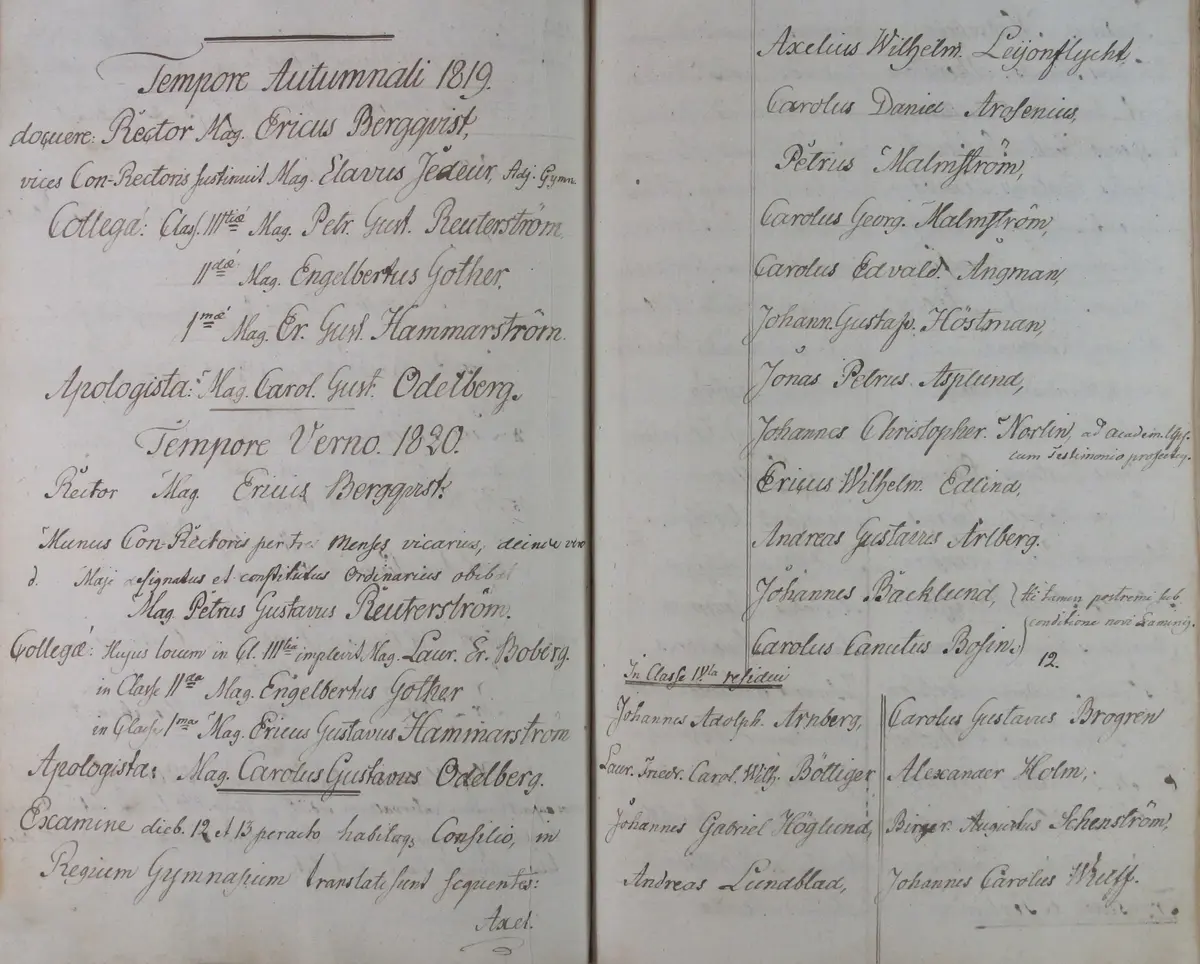 Tempore Autumnali 1819.
docuere: Rector Mag. Ericus Bergqvist,
vices Con-Rectoris sustinuit Mag. Elavus Jedeur, Adj. Gymn.
Collegæ: Class. IIItiæ Mag. Petr. Gust. Reuterström,
IIdæ Mag. Engelbertus Gother,
Imæ Mag. Er. Gust. Hammarström.
Apologista: Mag. Carol. Gust. Odelberg.
Tempore Verno. 1820.
Rector Mag. Ericus Bergqvist.
Munus Con-Rectoris per tres menses vicarius, deinde vero
d. Maji designatus et constitutus Ordinarius obibat
Mag. Petrus Gustavus Reuterström.
Collegæ: Hujus locum in Cl. IIItia implevit Mag. Laur. Er. Boberg.
in Classe IIda Mag. Engelbertus Gother
in Classe Ima Mag. Ericus Gustavus Hammarström
Apologista: Mag. Carolus Gustavus Odelberg.
Examine dieb. 12 et 13 peracto habitoq; Consilio, in
Regium Gymnasium translati sunt sequentes:
Axel.
Axelius Wilhelm. Leijonflycht,
Carolus Daniel Arosenius,
Petrus Malmström,
Carolus Georg. Malmström,
Carolus Edvald. Ångman,
Johann. Gustaf. Höstman,
Jonas Petrus Asplund,
Johannes Christopher. Norlin, ad academ. Ups.
cum Testimonio
Ericus Wilhelm. Edlind,
Andreas Gustavus Arlberg.
Johannes Bäcklund, } Hi tamen postremi sub
conditione novi Examinis.
Carolus Canutus Bosin.
12.
In Classe IVta residui
Johannes Adolph. Arnberg,
Laur. Friedr. Carol. Wilh. Bölliger
Johannes Gabriel Höglund,
Andreas Lundblad,
Carolus Gustavus Brogren
Alexander Holm,
Birger Augustus Schenström,
Johannes Carolus Wulff.